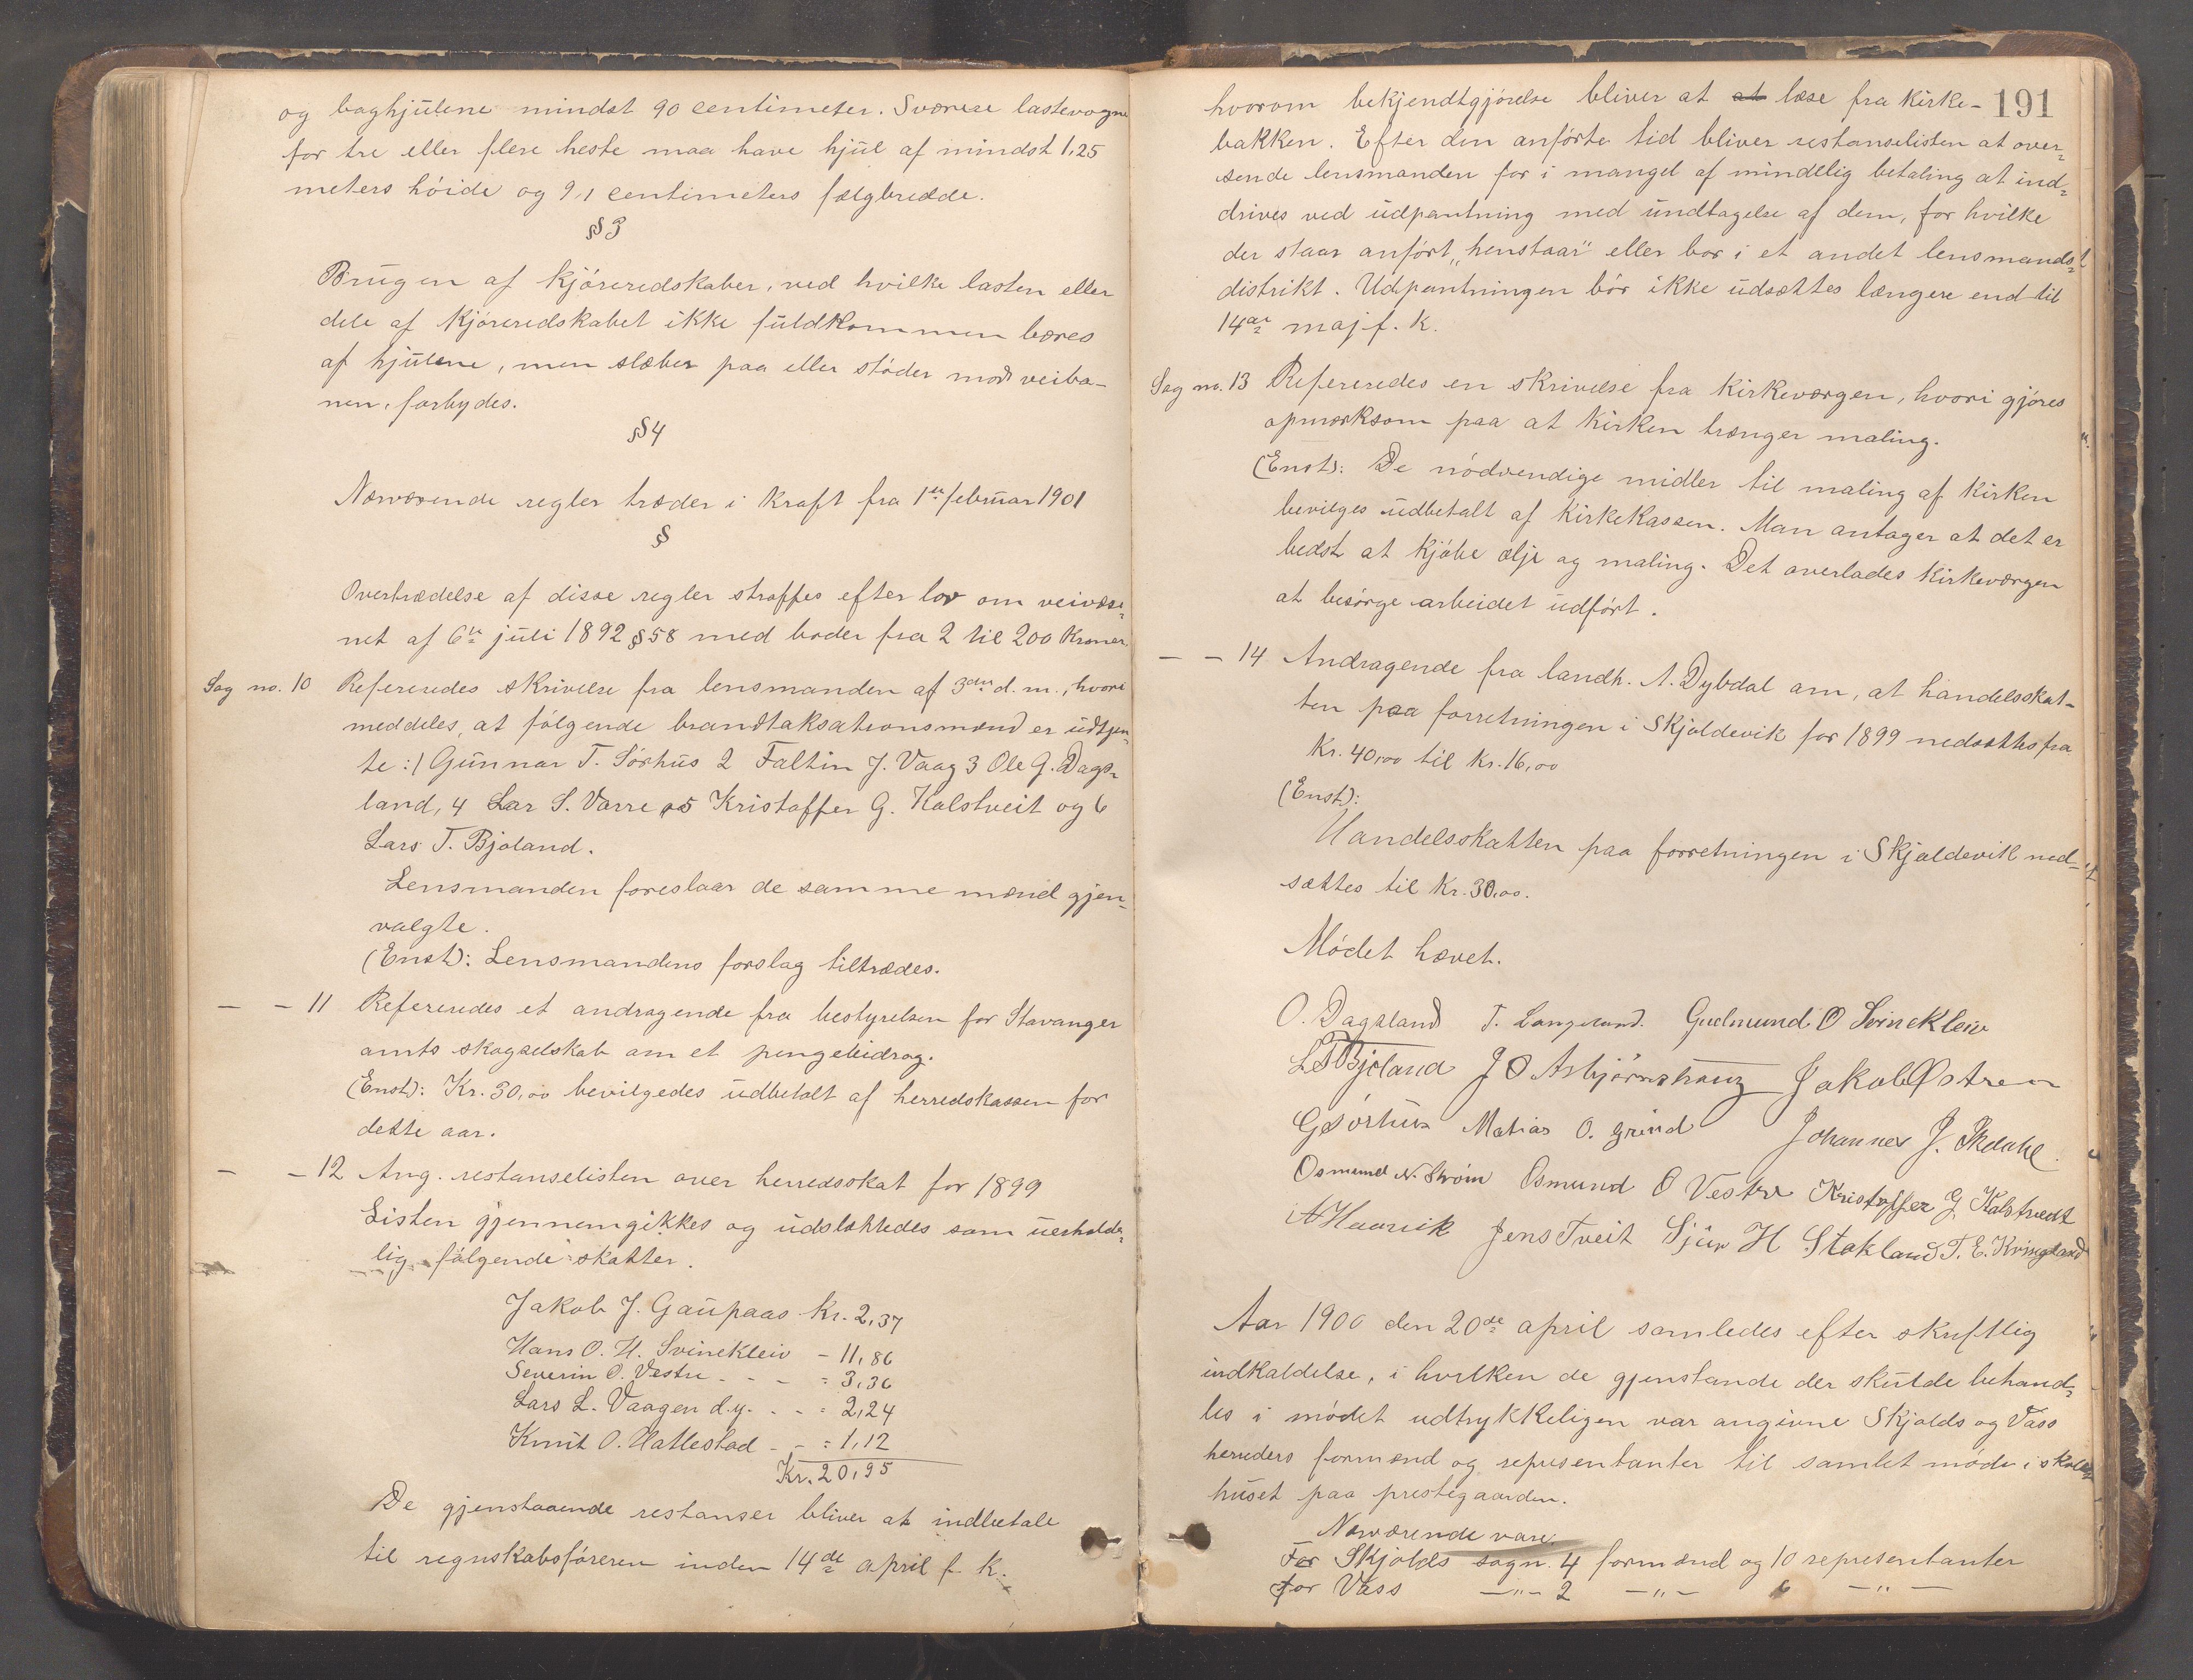 og baghjulene mindst 90 centimeter. Sværere lastevogne
for tre eller flere heste maa have hjul af mindst 1,25
meters høide og 9,1 centimeters fælgbredde.
§3
Brugen af kjøreredskaber, ved hvilke lasten eller
dele af kjøreredskabet ikke fuldkommen bæres
af hjulene, men slæber paa eller støder mod veiba-
nen, forbydes.
§4
Nærværende regler træder i kraft fra 1ste februar 1901
§
Overtrædelse af disse regler straffes efter lov om veivæse-
net af 6te juli 1892 §58 med bøder fra 2 til 200 kroner.
Sag no. 10 Refereredes skrivelse fra lensmanden af 3die d. m., hvori
meddeles, at følgende brandtaksationsmænd er udtjen-
te: 1 Gunnar T. Sørhus 2 Faltin J. Vaag 3 Ole G. Dags-
land, 4 Lar S. Varre 5 Kristoffer G. Kalstveit og 6
Lars T. Bjoland.
Lensmanden foreslaar de samme mænd gjen-
valgte.
(Enst): Lensmandens forslag tiltrædes.
— - 11 Refereredes et andragende fra bestyrelsen for Stavanger
amts skogselskab om et pengebidrag.
(Enst): Kr. 30,00 bevilgedes udbetalt af herredskassen for
dette aar.
— - 12 Ang. restanselisten over herredsskat for 1899
Listen gjennemgikkes og udslettedes som uerholde-
lig følgende skatter.
Jakob J. Gaupaas kr. 2,37
Hans O. H. Svinekleiv - 11,86
Severin O. Vestre - - - = 3,36
Lars L. Vaagen d.y. - - = 2,24
Knut O. Hatlestad - - = 1,12
Kr. 20,95
De gjenstaaende restanser bliver at indbetale
til regnskabsføreren inden 14de april f. k.
191
hvorom bekjendtgjørelse bliver at at læse fra kirke-
bakken. Efter den anførte tid bliver restanselisten at over-
sende lensmanden for i mangel af mindelig betaling at ind-
drives ved udpantning med undtagelse af dem, for hvilke
der staar anført "henstaar" eller bor i et andet lensmands-
distrikt. Udpantningen bør ikke udsættes længere end til
14de maj f. k.
Sag no. 13 Refereredes en skrivelse fra kirkeværgen, hvori gjøres
opmerksom paa at kirken trænger maling.
(Enst): De nødvendige midler til maling af kirken
bevilges udbetalt af kirkekassen. Man antager at det er
bedst at kjøbe olje og maling. Det overlades kirkeværgen
at besørge arbeidet udført.
— - 14 Andragende fra landh. A. Dybdal om, at handelsskat-
ten paa forretningen i Skjoldevik for 1899 nedsættes fra
Kr. 40,00 til Kr. 16,00
(Enst):
Handelsskatten paa forretningen i Skjoldevik ned-
sættes til Kr. 30,00.
Mødet hævet.
O. Dagsland T. Langeland. Gudmund O Svinekleiv
L T Bjoland J O Asbjørnshaug Jakob Østren
G Sørhus Matias O. Grind Johannes J.
Osmund N. Strøm Osmund O Vestre Kristoffer G Kalstvedt
A Haavik Jens Tveit Sjur H Stakland T. E. Kvingland
Aar 1900 den 20de april samledes efter skriftlig
indkaldelse, i hvilken de gjenstande der skulde behand-
les i mødet udtrykkeligen var angivne Skjolds og Vass
herreders formænd og representanter til samlet møde i skole-
huset paa prestegaarden.
Nærværende vare:
For Skjolds sogn 4 formænd og 10 representanter
for Vass —"— 2 —"— 6 —"—